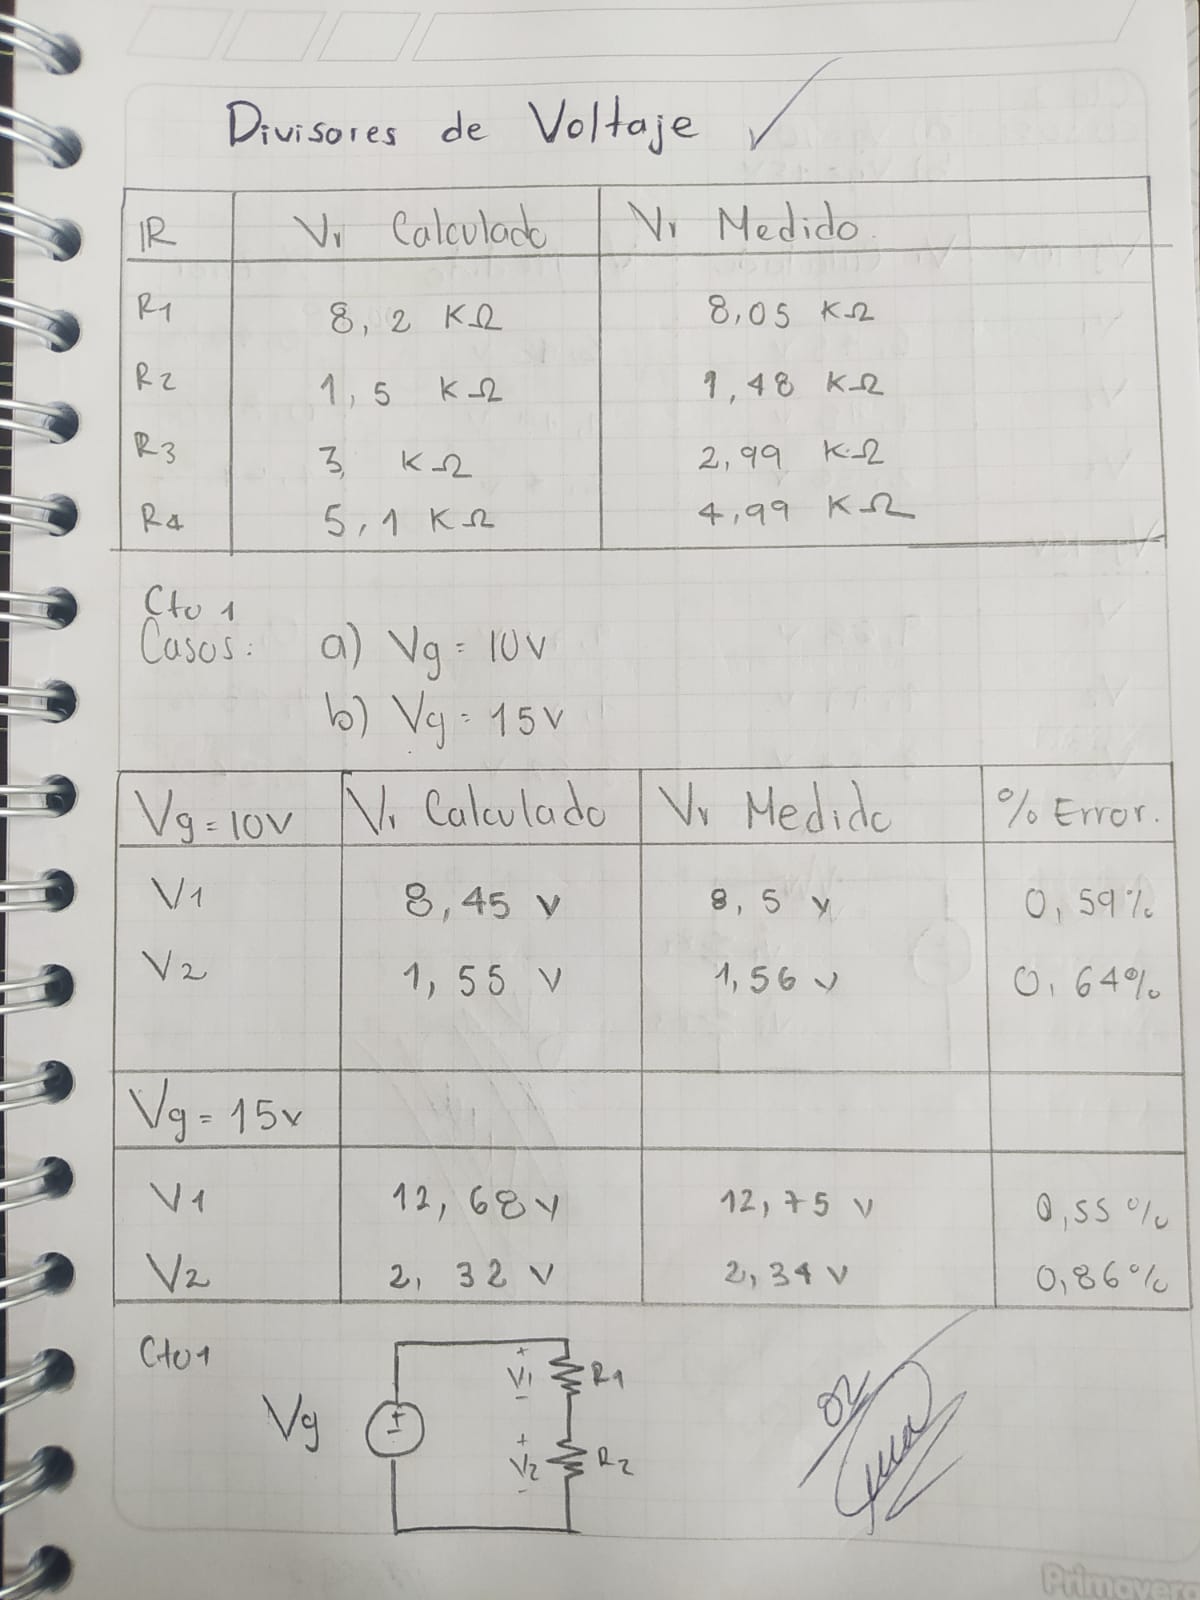 Divisores de Voltaje
IR Vr Calculado Vr Medido.
R1 8,2 KΩ 8,05 KΩ
R2 1,5 KΩ 1,48 KΩ
R3 3, KΩ 2,99 KΩ
R4 5,1 KΩ 4,99 KΩ
Cto 1
Casos: a) Vg = 10V
b) Vg = 15V
Vg = 10V Vr Calculado Vr Medido % Error.
V1 8,45 V 8,5 V 0,59%
V2 1,55 V 1,56 V 0,64%
Vg = 15V
V1 12,68 V 12,75 V 0,55%
V2 2,32 V 2,34 V 0,86%
Cto 1
+
V1 R1
-
Vg ±
+
V2 R2
-
Primavera